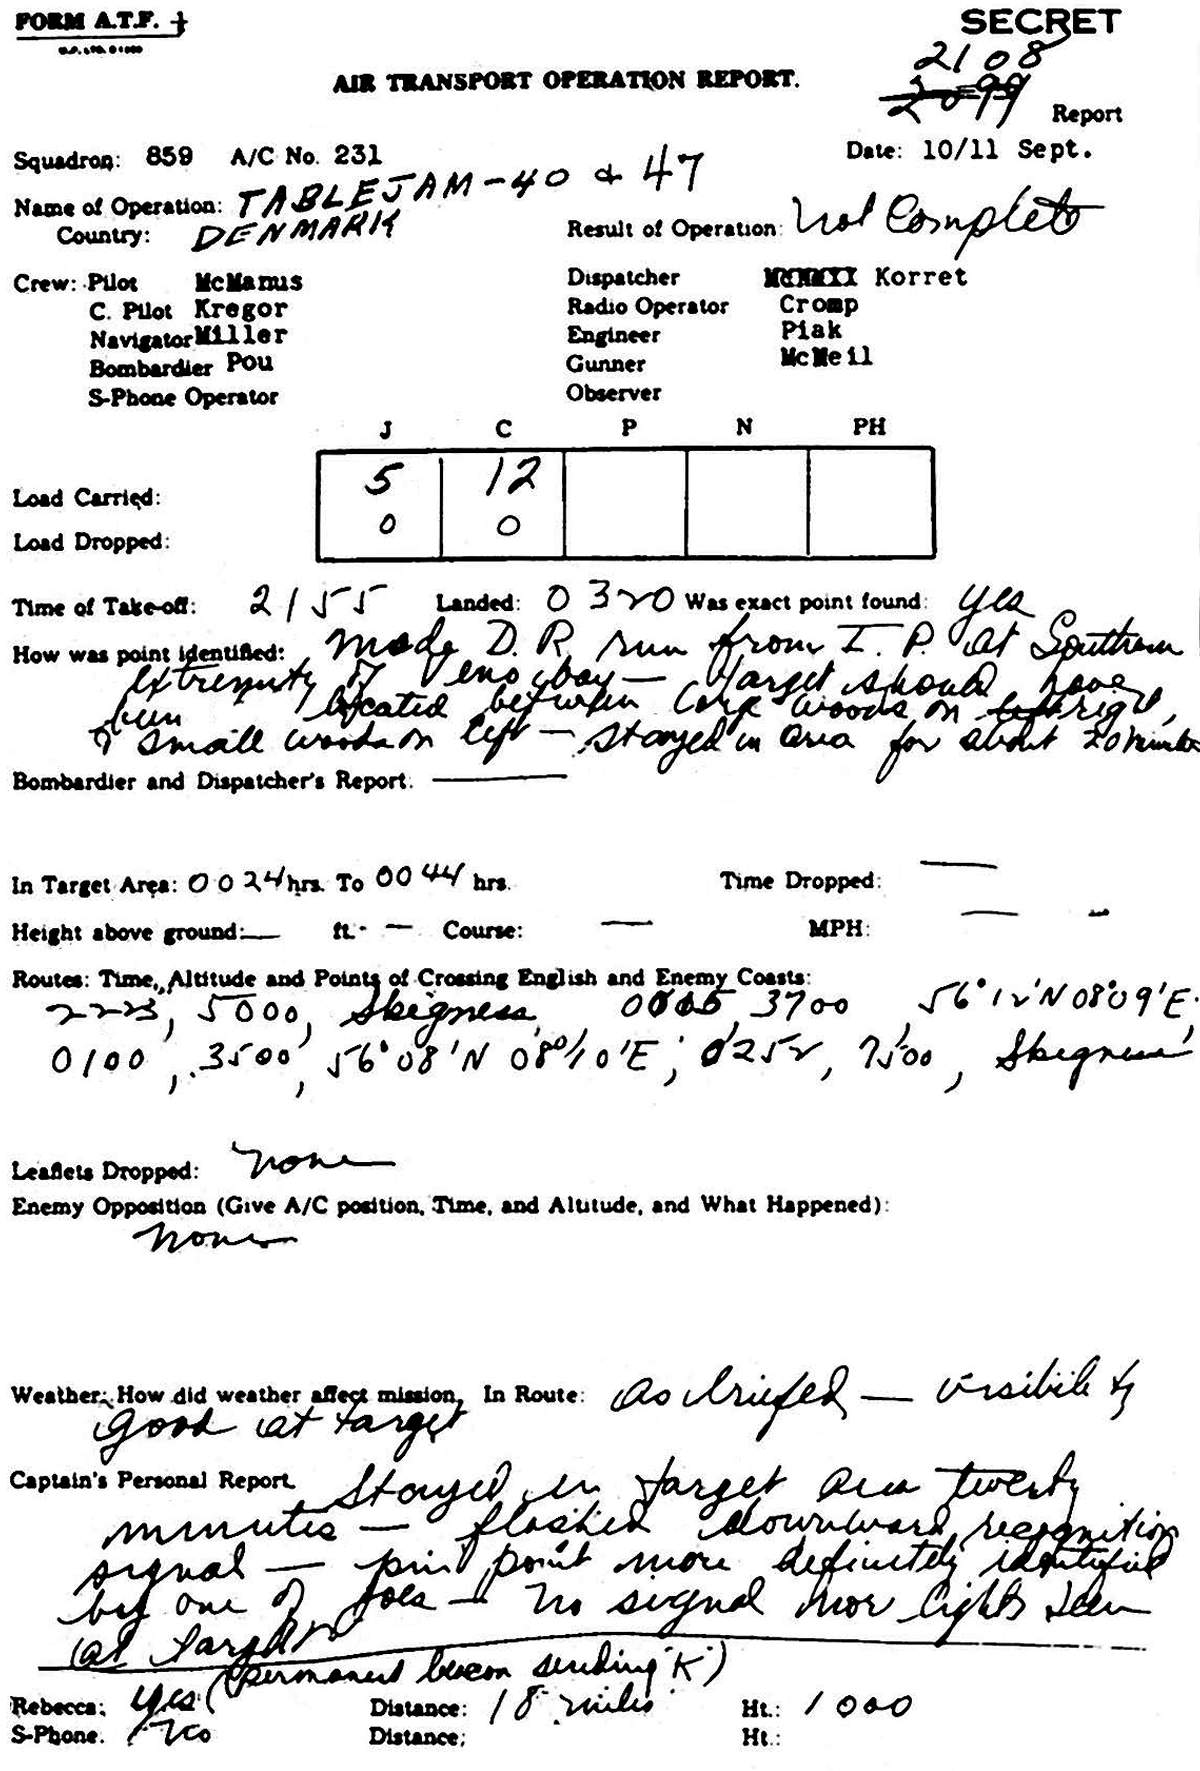 FORM A.T.F.
SECRET
2108
2099
AIR TRANSPORT OPERATION REPORT.
Report
Squadron: 859 A/C No. 231 Date: 10/11 Sept.
Name of Operation: TABLEJAM-40 & 47
Country: DENMARK Result of Operation: Not Complete
Crew: Pilot McManus Dispatcher Korret
C. Pilot Kregor Radio Operator Cromp
Navigator Miller Engineer Piak
Bombardier Pou Gunner McNeil
S-Phone Operator Observer
J C P N PH
Load Carried: 5 12
Load Dropped: 0 0
Time of Take-off: 2155 Landed: 0320 Was exact point found: yes
How was point identified: Made D.R. run from I.P. at Southern
extremity of bay — target should have
been located between large woods on left right,
& small woods on left — stayed in area for about 20 minutes
Bombardier and Dispatcher's Report. —
In Target Area: 0024 hrs. To 0044 hrs. Time Dropped: —
Height above ground: — ft. — Course: — MPH: — —
Routes: Time, Altitude and Points of Crossing English and Enemy Coasts:
2223, 5000, Skegness, 3700, 56°12'N 08°09'E;
0100, 3500, 56°08'N 08°10'E; 0252, 7500, Skegness
Leaflets Dropped: None
Enemy Opposition (Give A/C position, Time, and Altitude, and What Happened):
None
Weather: How did weather affect mission, In Route: As briefed — visibility
good at target
Captain's Personal Report. Stayed in target area twenty
minutes — flashed downward recognition
signal — pin point more definitely identified
by one of Joes — No signal nor lights seen
at target
(permanent beacon sending "K")
Rebecca: Yes Distance: 18 miles Ht.: 1000
S-Phone. No Distance: Ht.: